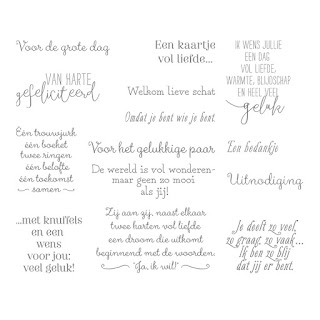 Voor de grote dag
Een kaartje
vol liefde...
IK WENS JULLIE
EEN DAG
VOL LIEFDE,
WARMTE, BLIJDSCHAP
EN HEEL VEEL
geluk
VAN HARTE
gefeliciteerd
Welkom lieve schat
Omdat je bent wie je bent
Eén trouwjurk
één boeket
twee ringen
één belofte
één toekomst
samen
Voor het gelukkige paar
De wereld is vol wonderen-
maar geen zo mooi
als jij!
Een bedankje
Uitnodiging
...met knuffels
en een
wens
voor jou:
veel geluk!
Zij aan zij, naast elkaar
twee harten vol liefde
een droom die uitkomt
beginnend met de woorden:
"Ja, ik wil!"
Je deelt zo veel,
zo graag, zo vaak...
Ik ben zo blij
dat jij er bent.